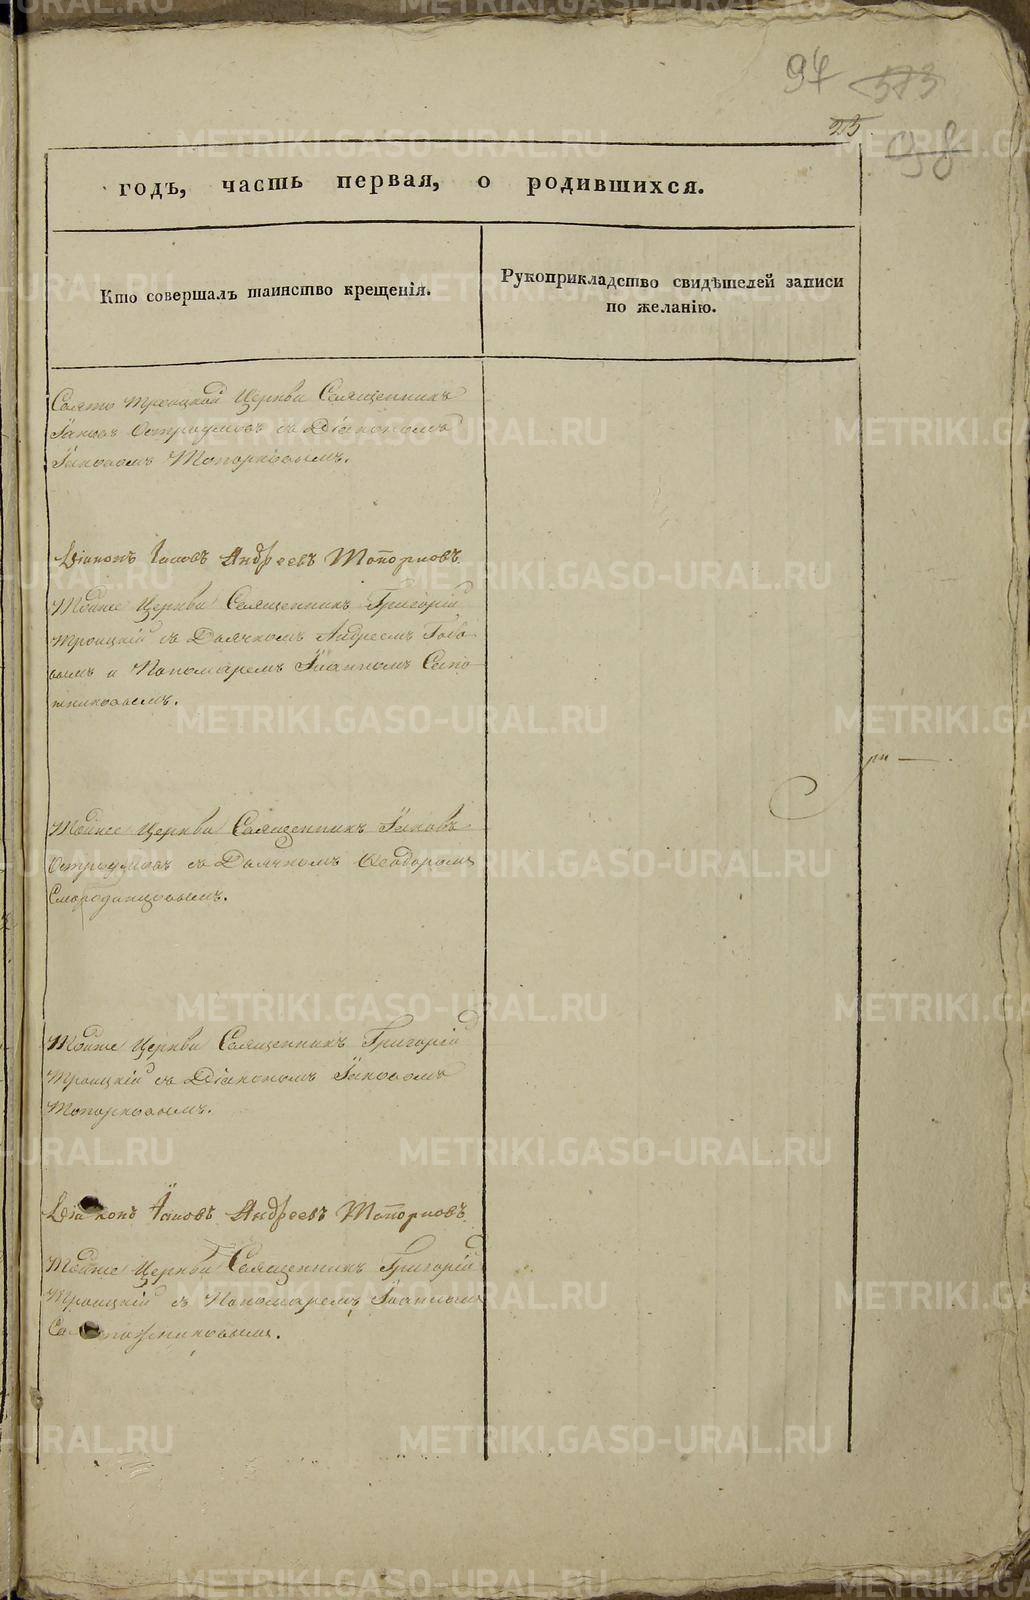 94 573
25
98
годъ, часть первая, о родившихся.
Кто совершалъ таинство крещенія.
Рукоприкладство свидѣтелей записи
по желанію.
Свято Троицкой Церкви Священникъ
Іаковъ Остроумовъ съ Діакономъ
Іаковомъ Топорковымъ.
Діаконъ Іаковъ Андреевъ Топорковъ.
Тойже Церкви Священникъ Григорій
Троицкій съ Дьячкомъ Андреемъ
вымъ и Пономаремъ Іоанномъ Сапо-
жниковымъ.
Тойже Церкви Священникъ Іаковъ
Остроумовъ съ Дьячкомъ Ѳеодоромъ
Смородинцовымъ.
Тойже Церкви Священникъ Григорій
Троицкій съ Діакономъ Іаковомъ
Топорковымъ.
Діаконъ Іаковъ Андреевъ Топорковъ.
Тойже Церкви Священникъ Григорій
Троицкій съ Пономаремъ Іоанномъ
Сапожниковымъ.
METRIKI.GASO-URAL.RU